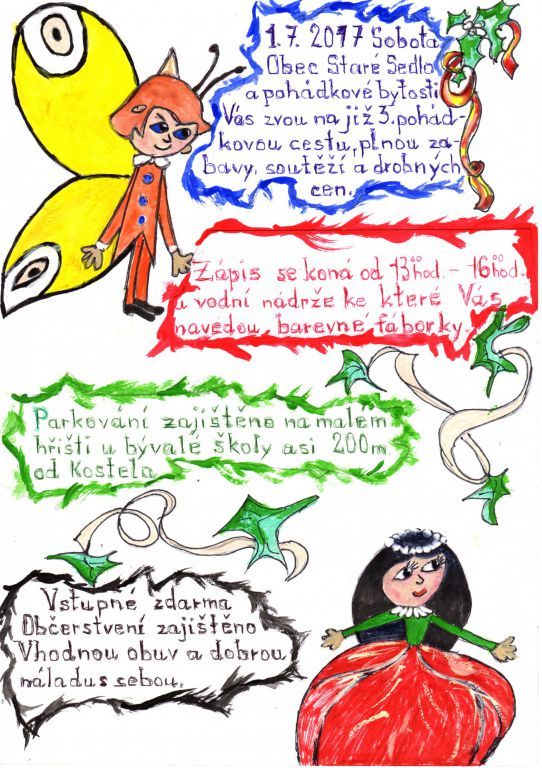 1.7. 2017 Sobota
Obec Staré Sedlo
a pohádkové bytosti
Vás zvou na již 3. pohád-
kovou cestu, plnou zá-
bavy, soutěží a drobných
cen.
Zápis se koná od 13⁰⁰hod. - 16⁰⁰hod.
u vodní nádrže ke které Vás
navedou barevné fáborky.
Parkování zajištěno na malém
hřišti u bývalé školy asi 200m
od Kostela
Vstupné zdarma
Občerstvení zajištěno
Vhodnou obuv a dobrou
náladu s sebou.